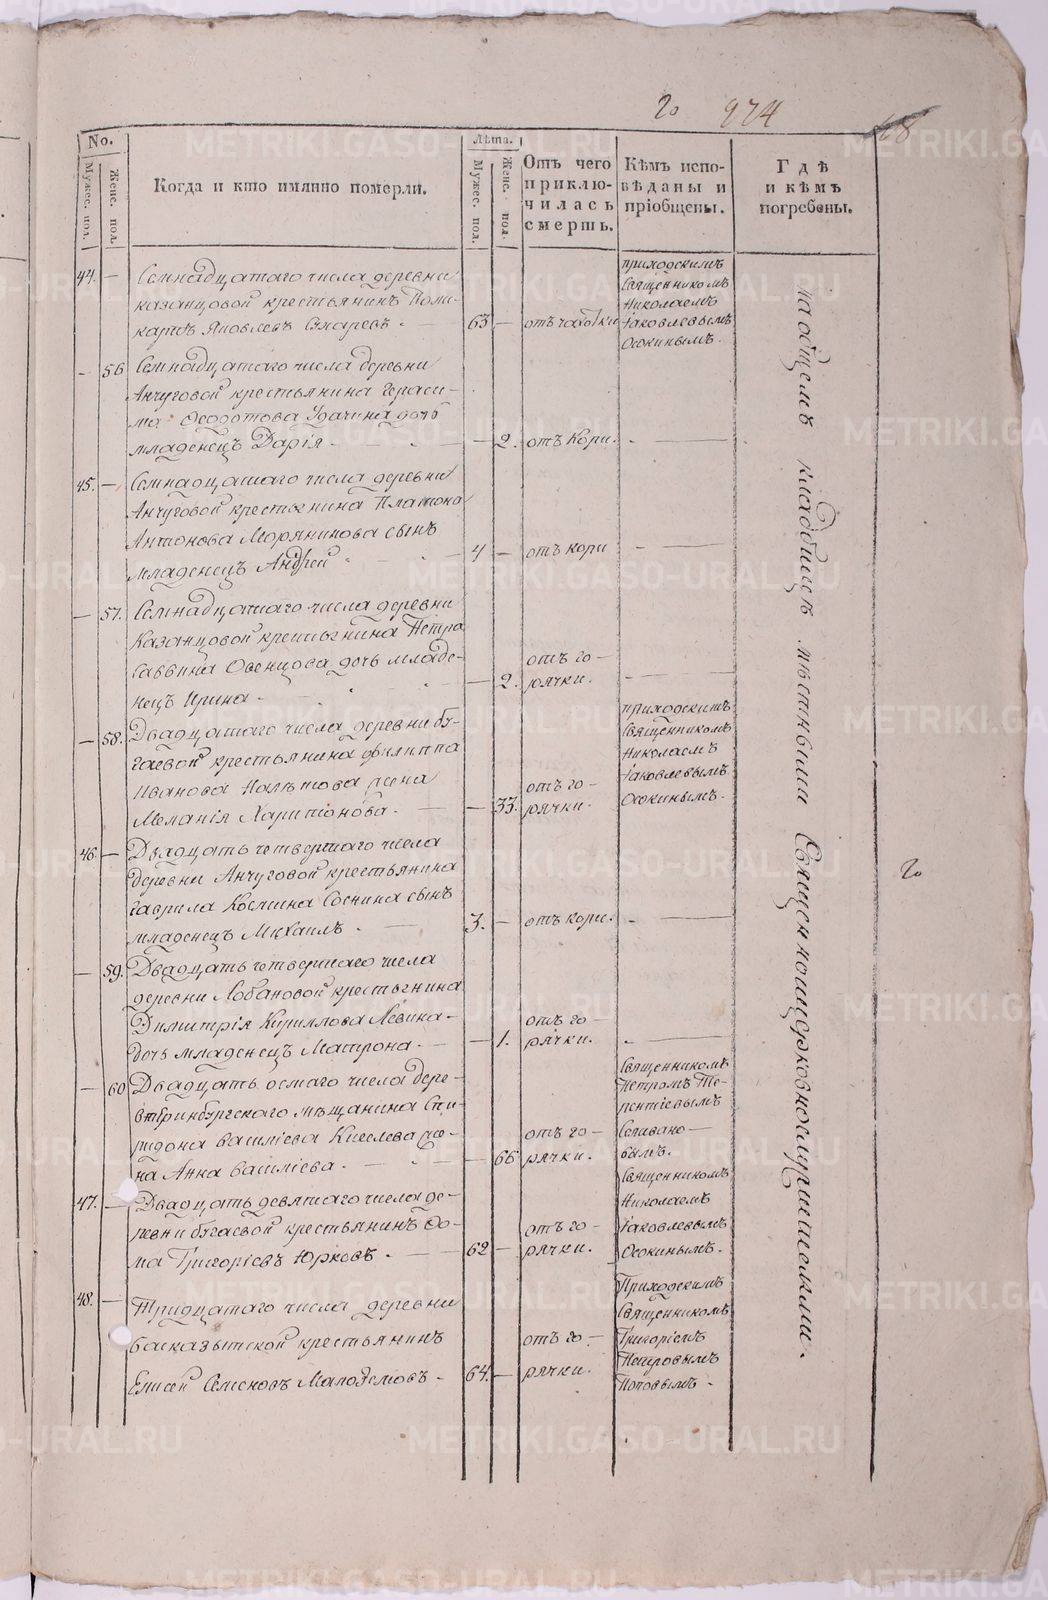 20 974
68
No.
Мужес. пол.
Женс. пол.
Когда и кто имянно померли.
Лѣта.
Мужес. пол.
Женс. пол.
Отъ чего
приклю-
чилась
смерть.
Кѣмъ испо-
вѣданы и
пріобщены.
Гдѣ
и кѣмъ
погребены.
44. — Семнадцатаго числа деревни
казанцовой крестьянинъ Поли-
карпъ Яковлевъ
63 — отъ чахотки
приходскимъ
Священникомъ
Николаемъ
Іаковлевымъ
Осокинымъ.
— 56 Семнадцатаго числа деревни
Анчуговой крестьянина Гераси-
ма Ѳедотова Удачина дочь
младенецъ Дарія.
— 2. отъ кори. —
45. — Семнадцатаго числа деревни
Анчуговой крестьянина Платона
Антонова сынъ
младенецъ Андрей
4 — отъ кори —
— 57. Семнадцатаго числа деревни
Казанцовой крестьянина Петра
Саввина Овенцова дочь младе-
нецъ Ирина.
— 2. отъ го-
рячки. —
— 58. Двадцатаго числа деревни Бу-
гаевой крестьянина Филиппа
Иванова жена
Меланія Харитонова.
— 33. отъ го-
рячки.
приходскимъ
Священникомъ
Николаемъ
Іаковлевымъ
Осокинымъ.
46. — Двадцать четвертаго числа
деревни Анчуговой крестьянина
Гаврила Космина Соснина сынъ
младенецъ Михаилъ.
3. — отъ кори. —
— 59. Двадцать четвертаго числа
деревни Лобановой крестьянина
Димитрія Кириллова Левина
дочь младенецъ Матрона.
— 1. отъ го-
рячки. —
— 60 Двадцать осмаго числа
мѣщанина Спи-
ридона Василіева Киселева же-
на Анна Василіева.
— 66 отъ го-
рячки.
Священникомъ
Петромъ Те-
рентіевымъ
Селивано-
вымъ.
47. — Двадцать девятаго числа де-
ревни Бугаевой крестьянинъ Ѳо-
ма Григоріевъ Юрковъ.
62 — отъ го-
рячки.
Священникомъ
Николаемъ
Іаковлевымъ
Осокинымъ.
48. — Тридцатаго числа деревни
крестьянинъ
Елисей Семеновъ
64. — отъ го-
рячки.
Приходскимъ
Священникомъ
Григоріемъ
Петровымъ
Поповымъ.
на общемъ кладбищѣ мѣстными Священноцерковнослужителями.
20
METRIKI.GASO-URAL.RU